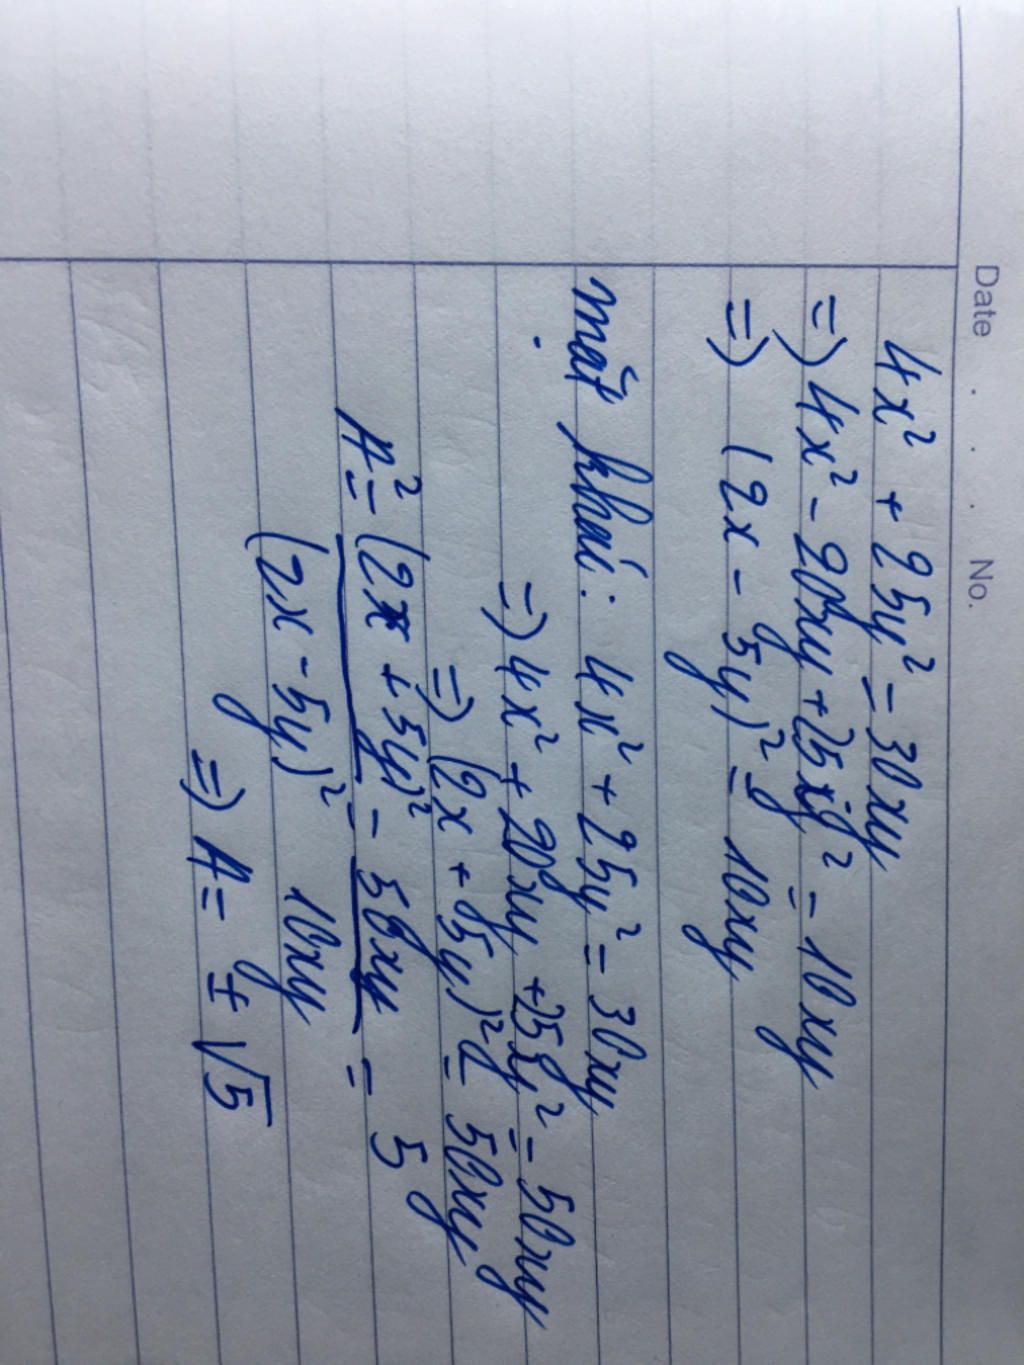 Date . . . No.
4x² + 25y² = 30xy
=) 4x² - 20xy + 25y² = 10xy
=) (2x - 5y)² = 10xy
mặt khác: 4x² + 25y² = 30xy
=) 4x² + 20xy + 25y² = 50xy
=) (2x + 5y)² = 50xy
A² = (2x + 5y)² / (2x - 5y)² = 50xy / 10xy = 5
=) A = ± √5